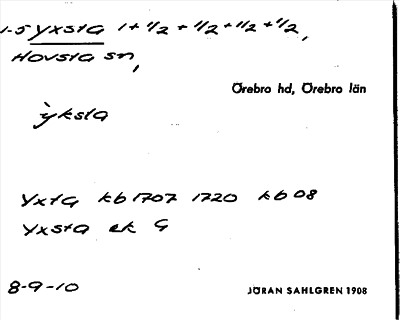 1-5 Yxsta 1+1/2+1/2+1/2+1/2,
Hovsta sn,
Örebro hd, Örebro län
ỳksta
Yxta kb 1707 1720 kb 08
Yxsta ek G
8-9-10
JÖRAN SAHLGREN 1908